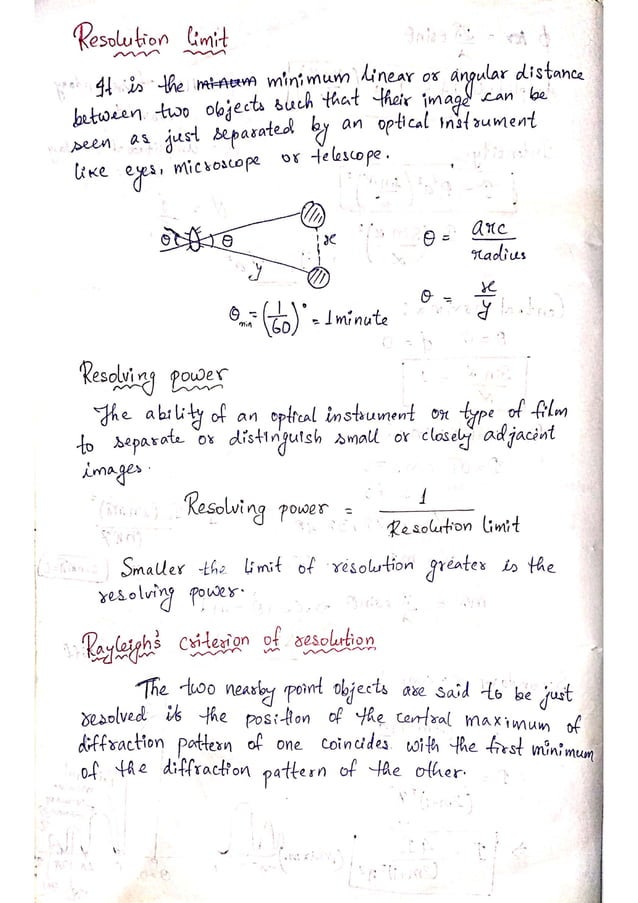 Resolution limit
It is the minum minimum linear or angular distance
between two objects such that their image can be
seen as just separated by an optical instrument
like eyes, microscope or telescope.
θ θ x y
θ = arc / radius
θ = x / y
θmin = (1/60)° = 1 minute
Resolving power
The ability of an optical instrument or type of film
to separate or distinguish small or closely adjacent
images.
Resolving power = 1 / Resolution limit
Smaller the limit of resolution greater is the
resolving power.
Rayleigh's criterion of resolution
The two nearby point objects are said to be just
resolved if the position of the central maximum of
diffraction pattern of one coincides with the first minimum
of the diffraction pattern of the other.